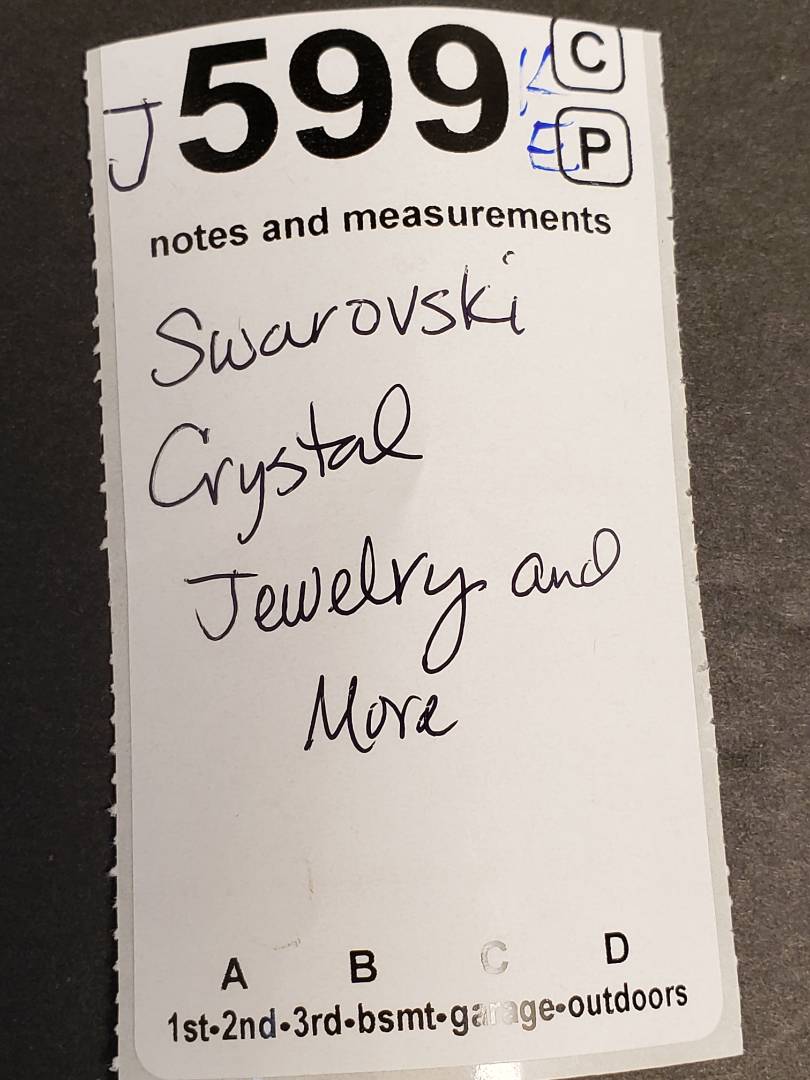 J599 K C
E P
notes and measurements
Swarovski
Crystal
Jewelry and
More
A B C D
1st•2nd•3rd•bsmt•garage•outdoors